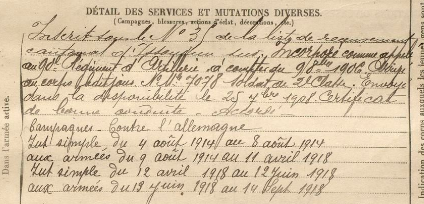 DÉTAIL DES SERVICES ET MUTATIONS DIVERSES.
(Campagnes, blessures, actions d'éclat, décorations, etc.)
Inscrit sous le N° 31 de la liste de recrutement
cantonal d'Incorporé comme appelé
au 90e Régiment d'Infanterie à compter du 9 8bre 1906. Arrivé
au corps ledit jour. N° Mle 7078 soldat de 2e Classe. Envoyé
dans la disponibilité le 25 7bre 1908 Certificat
de bonne conduite "Accordé"
Campagnes - Contre l'Allemagne
Int simple du 4 août 1914 au 8 août 1914
aux armées du 9 août 1914 au 11 avril 1918
Int simple du 12 avril 1918 au 12 juin 1918
aux armées du 13 juin 1918 au 14 Sept 1918
Dans l'armée active.